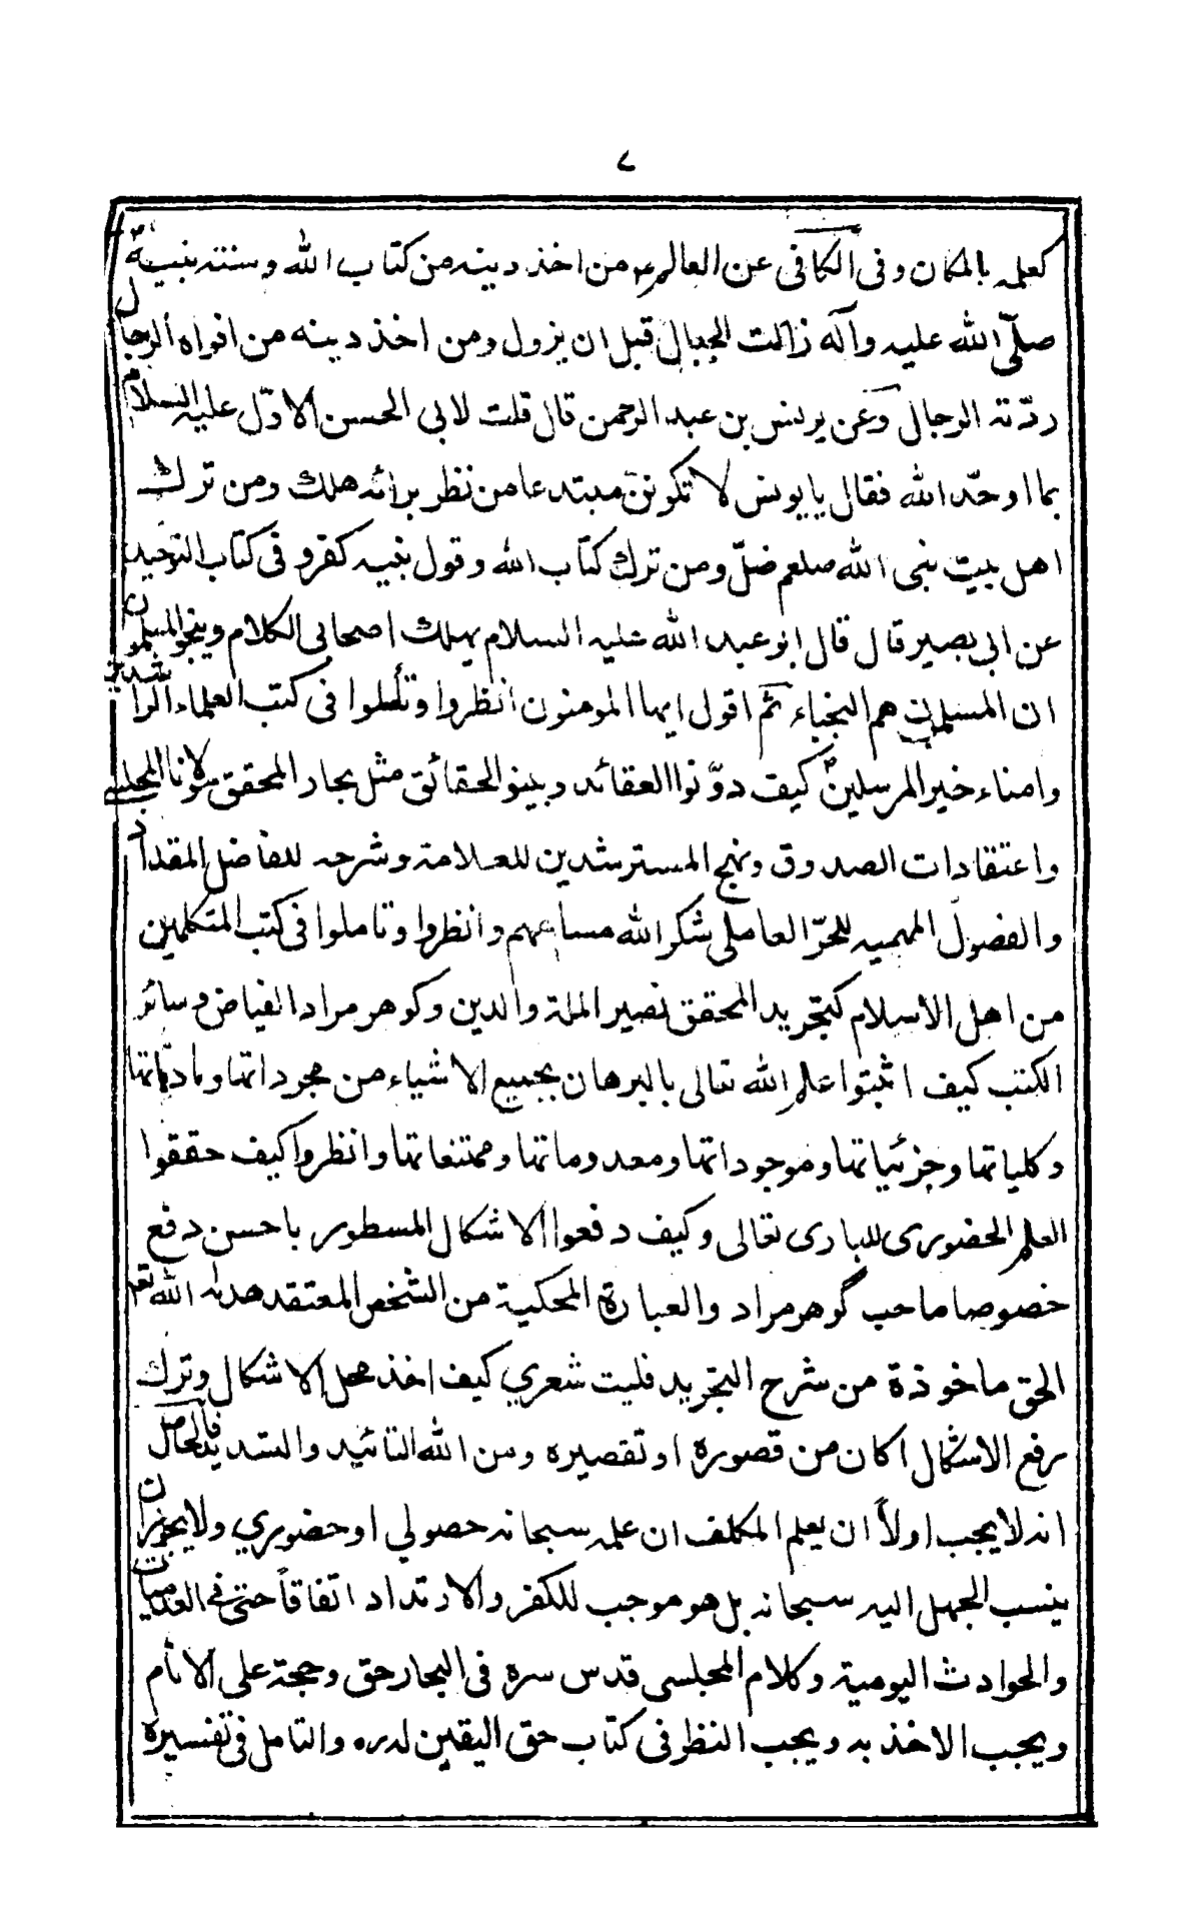 ٧
كعلمه بالمكان وفى الكافى عن العالم ع من اخذ دينه من كتاب الله وسنته نبيه
صلّى الله عليه وآله زالت الجبال قبل ان يزول ومن اخذ دينه من افواه الرجال
ردّته الرجال وعن يونس بن عبد الرحمن قال قلت لابي الحسن الاوّل عليه السلام
بما اوحّد الله فقال يا يونس لا تكوننّ مبتدعا من نظر برائه هلك ومن ترك
اهل بيت نبى الله صلعم ضلّ ومن ترك كتاب الله وقول نبيه كفر وفى كتاب التوحيد
عن ابى بصير قال قال ابو عبد الله عليه السلام يهلك اصحاب الكلام وينجو المسلمون
ان المسلمين هم النجباء ثم اقول ايها المومنون انظروا وتأملوا فى كتب العلماء الراشدين
وامناء خير المرسلين كيف دوّنوا العقائد وبينو الحقائق مثل بحار المحقق مولانا المجلسى
واعتقادات الصدوق ونهج المسترشدين للعلامة وشرحه للفاضل المقداد
والفصول المهميه للحرّ العاملى شكر الله مساعيهم وانظروا وتاملوا فى كتب المتكلمين
من اهل الاسلام كتجريد المحقق نصير الملة والدين وكوهر مراد الفياض وسائر
الكتب كيف اثبتوا علم الله تعالى بالبرهان بجميع الاشياء من مجرداتها وماديّاتها
وكلياتها وجزئياتها وموجوداتها ومعدوماتها وممتنعاتها وانظروا كيف حققوا
العلم الحضورى للبارى تعالى وكيف دفعوا الاشكال المسطور باحسن دفع
خصوصا صاحب گوهر مراد والعبارة المحكية من الشخص المعتقد هداه الله تعم
الحق ماخوذة من شرح التجريد فليت شعري كيف اخذ محل الاشكال وترك
رفع الاشكال اكان من قصوره او تقصيره ومن الله التائيد والتسديد فالحاصل
انه لا يجب اولاً ان يعلم المكلف ان علمه سبحانه حصولي او حضوري ولا يجوز ان
ينسب الجهل اليه سبحانه بل هو موجب للكفر والارتداد اتفاقاً حتى فى العدميات
والحوادث اليومية وكلام المجلسى قدس سره فى البحار حق وحجة على الانام
ويجب الاخذ به ويجب النظر فى كتاب حق اليقين لدره والتامل فى تفسيره